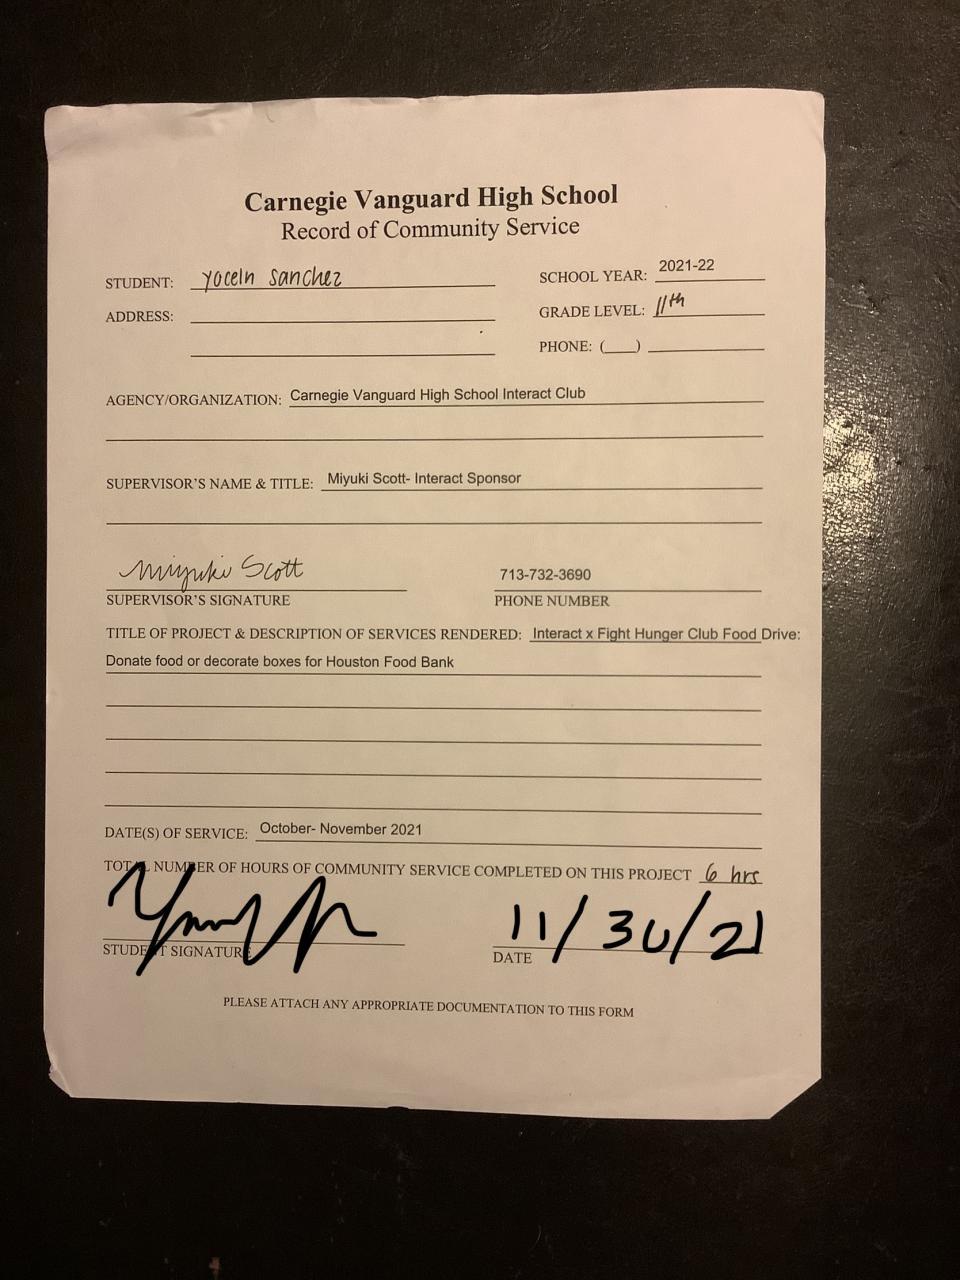 Carnegie Vanguard High School
Record of Community Service
STUDENT: Yoceln Sanchez SCHOOL YEAR: 2021-22
ADDRESS: GRADE LEVEL: 11th
PHONE: (___)
AGENCY/ORGANIZATION: Carnegie Vanguard High School Interact Club
SUPERVISOR'S NAME & TITLE: Miyuki Scott- Interact Sponsor
Miyuki Scott 713-732-3690
SUPERVISOR'S SIGNATURE PHONE NUMBER
TITLE OF PROJECT & DESCRIPTION OF SERVICES RENDERED: Interact x Fight Hunger Club Food Drive:
Donate food or decorate boxes for Houston Food Bank
DATE(S) OF SERVICE: October- November 2021
TOTAL NUMBER OF HOURS OF COMMUNITY SERVICE COMPLETED ON THIS PROJECT 6 hrs
11/30/21
STUDENT SIGNATURE DATE
PLEASE ATTACH ANY APPROPRIATE DOCUMENTATION TO THIS FORM